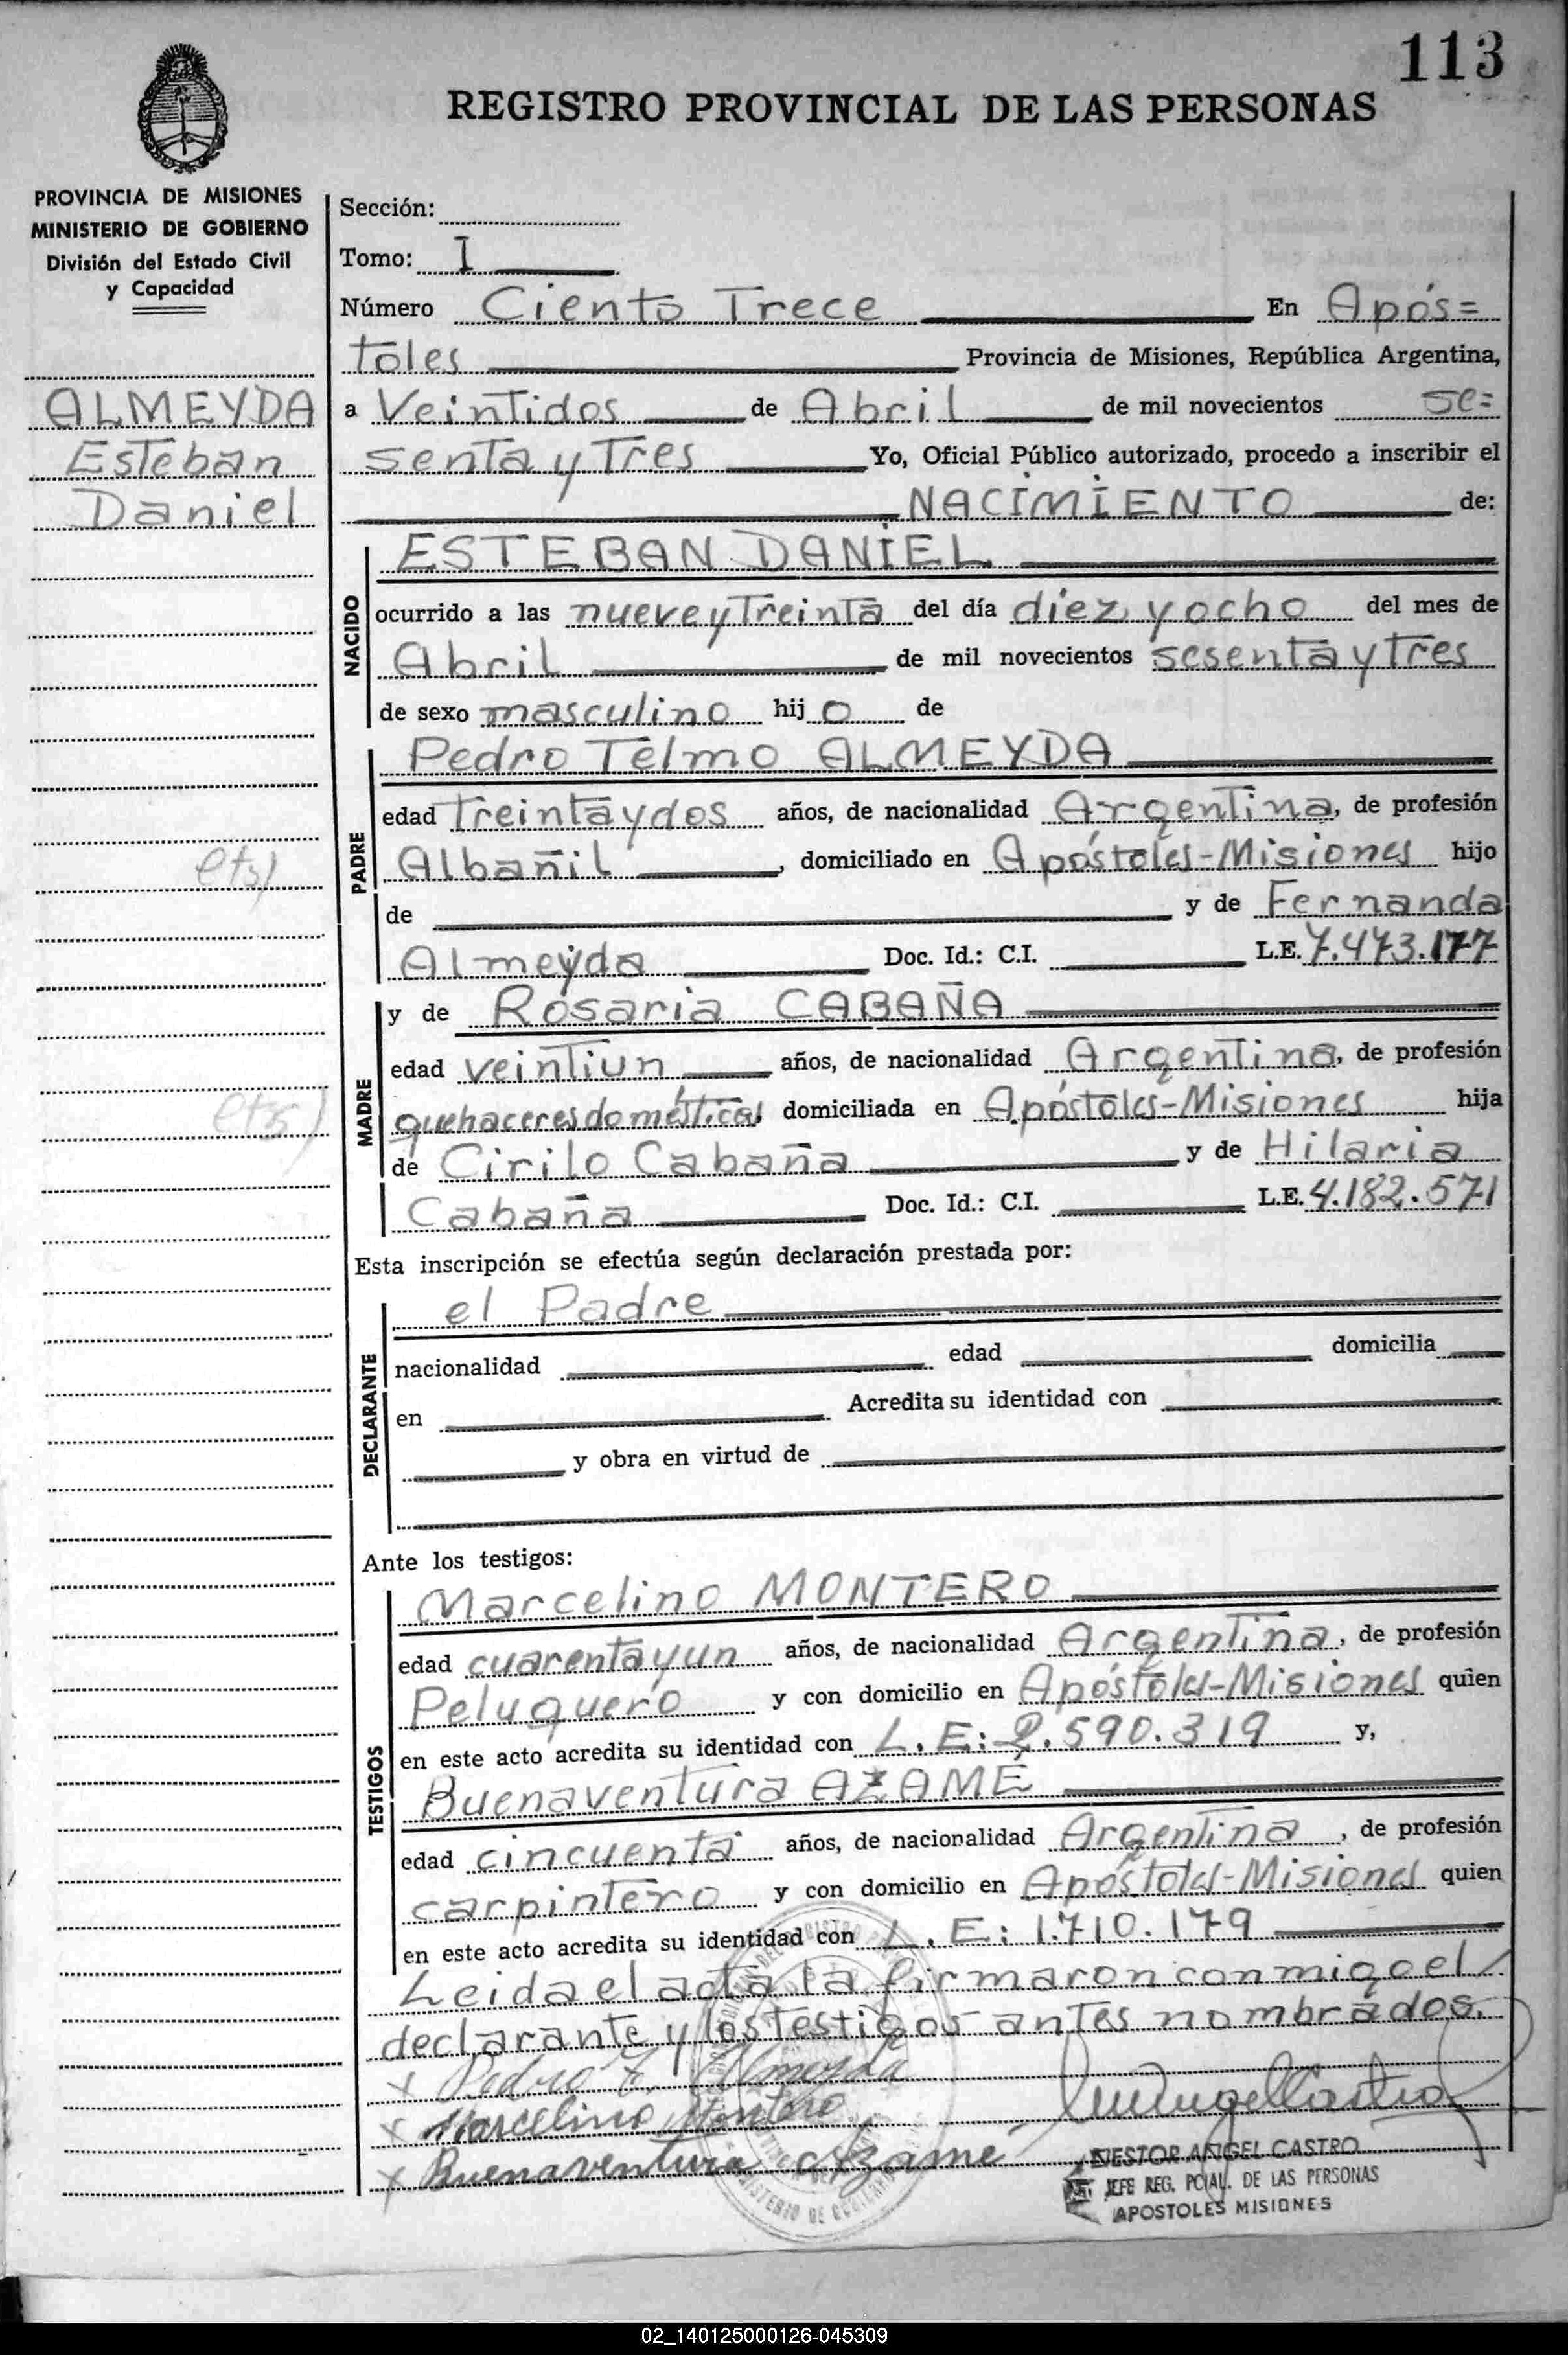 113
REGISTRO PROVINCIAL DE LAS PERSONAS
PROVINCIA DE MISIONES
MINISTERIO DE GOBIERNO
División del Estado Civil
y Capacidad
ALMEYDA
Esteban
Daniel
Sección:
Tomo: I
Número Ciento Trece En Após=
toles Provincia de Misiones, República Argentina,
a Veintidos de Abril de mil novecientos se=
senta y Tres Yo, Oficial Público autorizado, procedo a inscribir el
NACIMIENTO de:
NACIDO
ESTEBAN DANIEL
ocurrido a las nueve y Treinta del día diez y ocho del mes de
Abril de mil novecientos sesenta y Tres
de sexo masculino hij o de
PADRE
Pedro Telmo ALMEYDA
edad Treinta y dos años, de nacionalidad Argentina, de profesión
Albañil, domiciliado en Apóstoles-Misiones hijo
de y de Fernanda
Almeyda Doc. Id.: C.I. L.E. 7.473.177
MADRE
y de Rosaria CABAÑA
edad veintiun años, de nacionalidad Argentina, de profesión
quehaceres domésticos domiciliada en Apóstoles-Misiones hija
de Cirilo Cabaña y de Hilaria
Cabaña Doc. Id.: C.I. L.E. 4.182.571
Esta inscripción se efectúa según declaración prestada por:
DECLARANTE
el Padre
nacionalidad edad domicilia
en Acredita su identidad con
y obra en virtud de
Ante los testigos:
TESTIGOS
Marcelino MONTERO
edad cuarenta y un años, de nacionalidad Argentina, de profesión
Peluquero y con domicilio en Apóstoles-Misiones quien
en este acto acredita su identidad con L.E: 2.590.319 y,
Buenaventura AZAME
edad cincuenta años, de nacionalidad Argentina, de profesión
carpintero y con domicilio en Apóstoles-Misiones quien
en este acto acredita su identidad con L.E: 1.710.179
Leida el acta la firmaron conmigo el
declarante y los testigos antes nombrados.
x Pedro T. Almeyda
x Marcelino Montero
x Buenaventura Azame
NESTOR ANGEL CASTRO
JEFE REG. PCIAL. DE LAS PERSONAS
APOSTOLES MISIONES
02_140125000126-045309